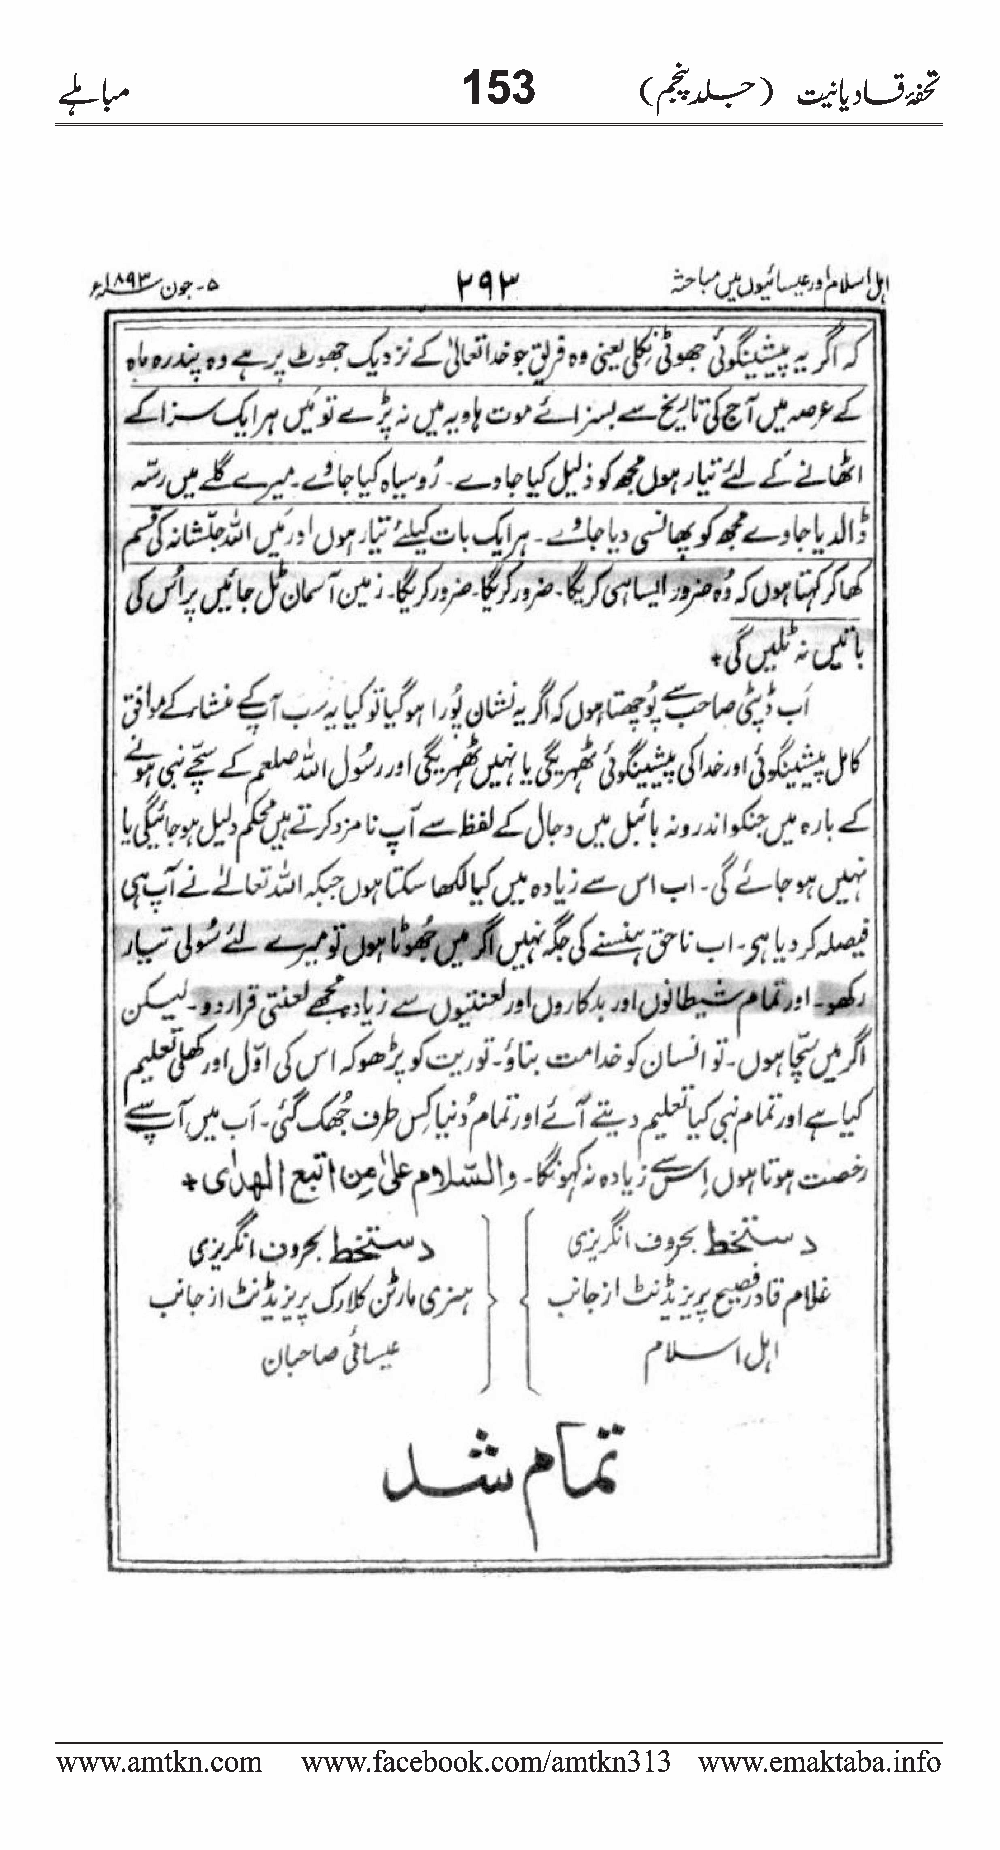 تحفۂ قادیانیت (جلد پنجم) 153 مباہلے
اہل اسلام اور عیسائیوں میں مباحثہ ۲۹۳ ۵۔جون ۱۸۹۳ء
کہ اگر یہ پیشینگوئی جھوٹی نکلی یعنی وہ فریق جو خدا تعالیٰ کے نزدیک جھوٹ پر ہے وہ پندرہ ماہ
کے عرصہ میں آج کی تاریخ سے بسزائے موت ہاویہ میں نہ پڑے تو میں ہر ایک سزا کے
اٹھانے کے لئے تیار ہوں مجھ کو ذلیل کیا جاوے۔ رُوسیاہ کیا جاوے۔ میرے گلے میں رسّہ
ڈالدیا جاوے مجھ کو پھانسی دیا جاوے۔ ہر ایک بات کیلئے تیار ہوں اور میں اللہ جلّشانہ کی قسم
کھا کر کہتا ہوں کہ وُہ ضرور ایسا ہی کریگا۔ ضرور کریگا۔ ضرور کریگا۔ زمین آسمان ٹل جائیں پر اُس کی
باتیں نہ ٹلیں گی +
اَب ڈپٹی صاحب سے پُوچھتا ہوں کہ اگر یہ نشان پُورا ہوگیا تو کیا یہ سب آپ کے منشاء کے موافق
کامل پیشینگوئی اور خدا کی پیشینگوئی ٹھہریگی یا نہیں ٹھہریگی اور رسُول اللہ صلعم کے سچّے نبی ہونے
کے بارہ میں جنکو اندرونہ بائبل میں دجال کے لفظ سے آپ نامزد کرتے ہیں محکم دلیل ہو جائیگی یا
نہیں ہو جائے گی۔ اب اس سے زیادہ میں کیا لکھا سکتا ہوں جبکہ اللہ تعالےٰ نے آپ ہی
فیصلہ کر دیا ہی۔ اب ناحق ہنسنے کی جگہ نہیں اگر میں جھُوٹا ہوں تو میرے لئے سُولی تیار
رکھو۔ اور تمام شیطانوں اور بدکاروں اور لعنتیوں سے زیادہ مجھے لعنتی قرار دو۔ لیکن
اگر میں سچّا ہوں۔ تو انسان کو خدا مت بناؤ۔ توریت کو پڑھو کہ اس کی اوّل اور کھلی تعلیم
کیا ہے اور تمام نبی کیا تعلیم دیتے آئے اور تمام دُنیا کس طرف جُھک گئی۔ اَب میں آپ سے
رخصت ہوتا ہوں اِس سے زیادہ نہ کہونگا۔ والسّلام علیٰ مِن اتبع الھدٰی +
دستخط بحروف انگریزی
غلام قادر فصیح پریزیڈنٹ از جانب
اہل اسلام
دستخط بحروف انگریزی
ہنری مارٹن کلارک پریزیڈنٹ از جانب
عیسائی صاحبان
تمام شد
www.amtkn.com www.facebook.com/amtkn313 www.emaktaba.info